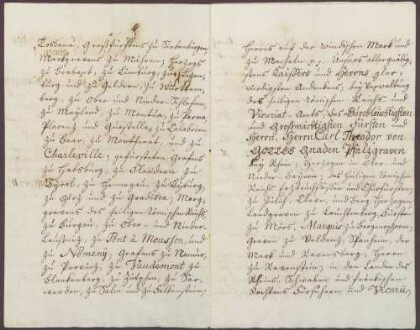 Toscana, Großfürstens zu Siebenbürgen,
Marggravens zu Mähren, Herzogs
zu Braband, zu Limburg, zu Luxem-
burg und zu Geldern, zu Würtem-
berg, zu Ober- und Nieder-Schlesien,
zu Mayland, zu Mantua, zu Parma,
Placenz und Quastalla, zu Calabrien
zu Baar, zu Montferat, und zu
Charleville; gefürsteten Grafens
zu Habsburg, zu Flandern, zu
Tyrol, zu Hennegau, zu Kyburg,
zu Görz und zu Gradisca, Marg-
gravens des heiligen Römischen Reichs,
zu Burgau, zu Ober- und Nieder-
Laußnitz, zu Pont à Mousson, und
zu Nomeny, Grafens zu Namur,
zu Provinz, zu Vaudemont, zu
Blankenberg, zu Zütphen, zu Sar-
werden, zu Salm und zu Falkenstein,
Herrns auf der windischen Mark und
zu Mecheln p. p. Unsers allergnädig-
stens Kaissers und Herrns glor-
würdigsten Andenkens, bey Verwaltung
des heiligen Römischen Reichs- und
Vicariat-Amts, des Durchleuchtigsten
und Großmächtigsten Fürsten und
Herrn, Herrn Carl Theodor von
GOTTES Gnaden Pfalzgraven
bey Rhein, Herzogen in Ober- und
Nieder-Bayern, des heiligen Römischen
Reichs Erztruchseßen und Churfürsten,
zu Jülich, Cleve, und Berg Herzogen,
Landgraven zu Leuchtenberg, Fürsten
zu Mörs, Marquis zu Bergenopzoom,
Graven zu Veldenz, Sponheim, der
Mark und Ravensberg, Herrn
zu Ravenstein, in den Landen des
Rheins, Schwaben und fränkischen
Rechtens Fürsehern, und Vicarii,